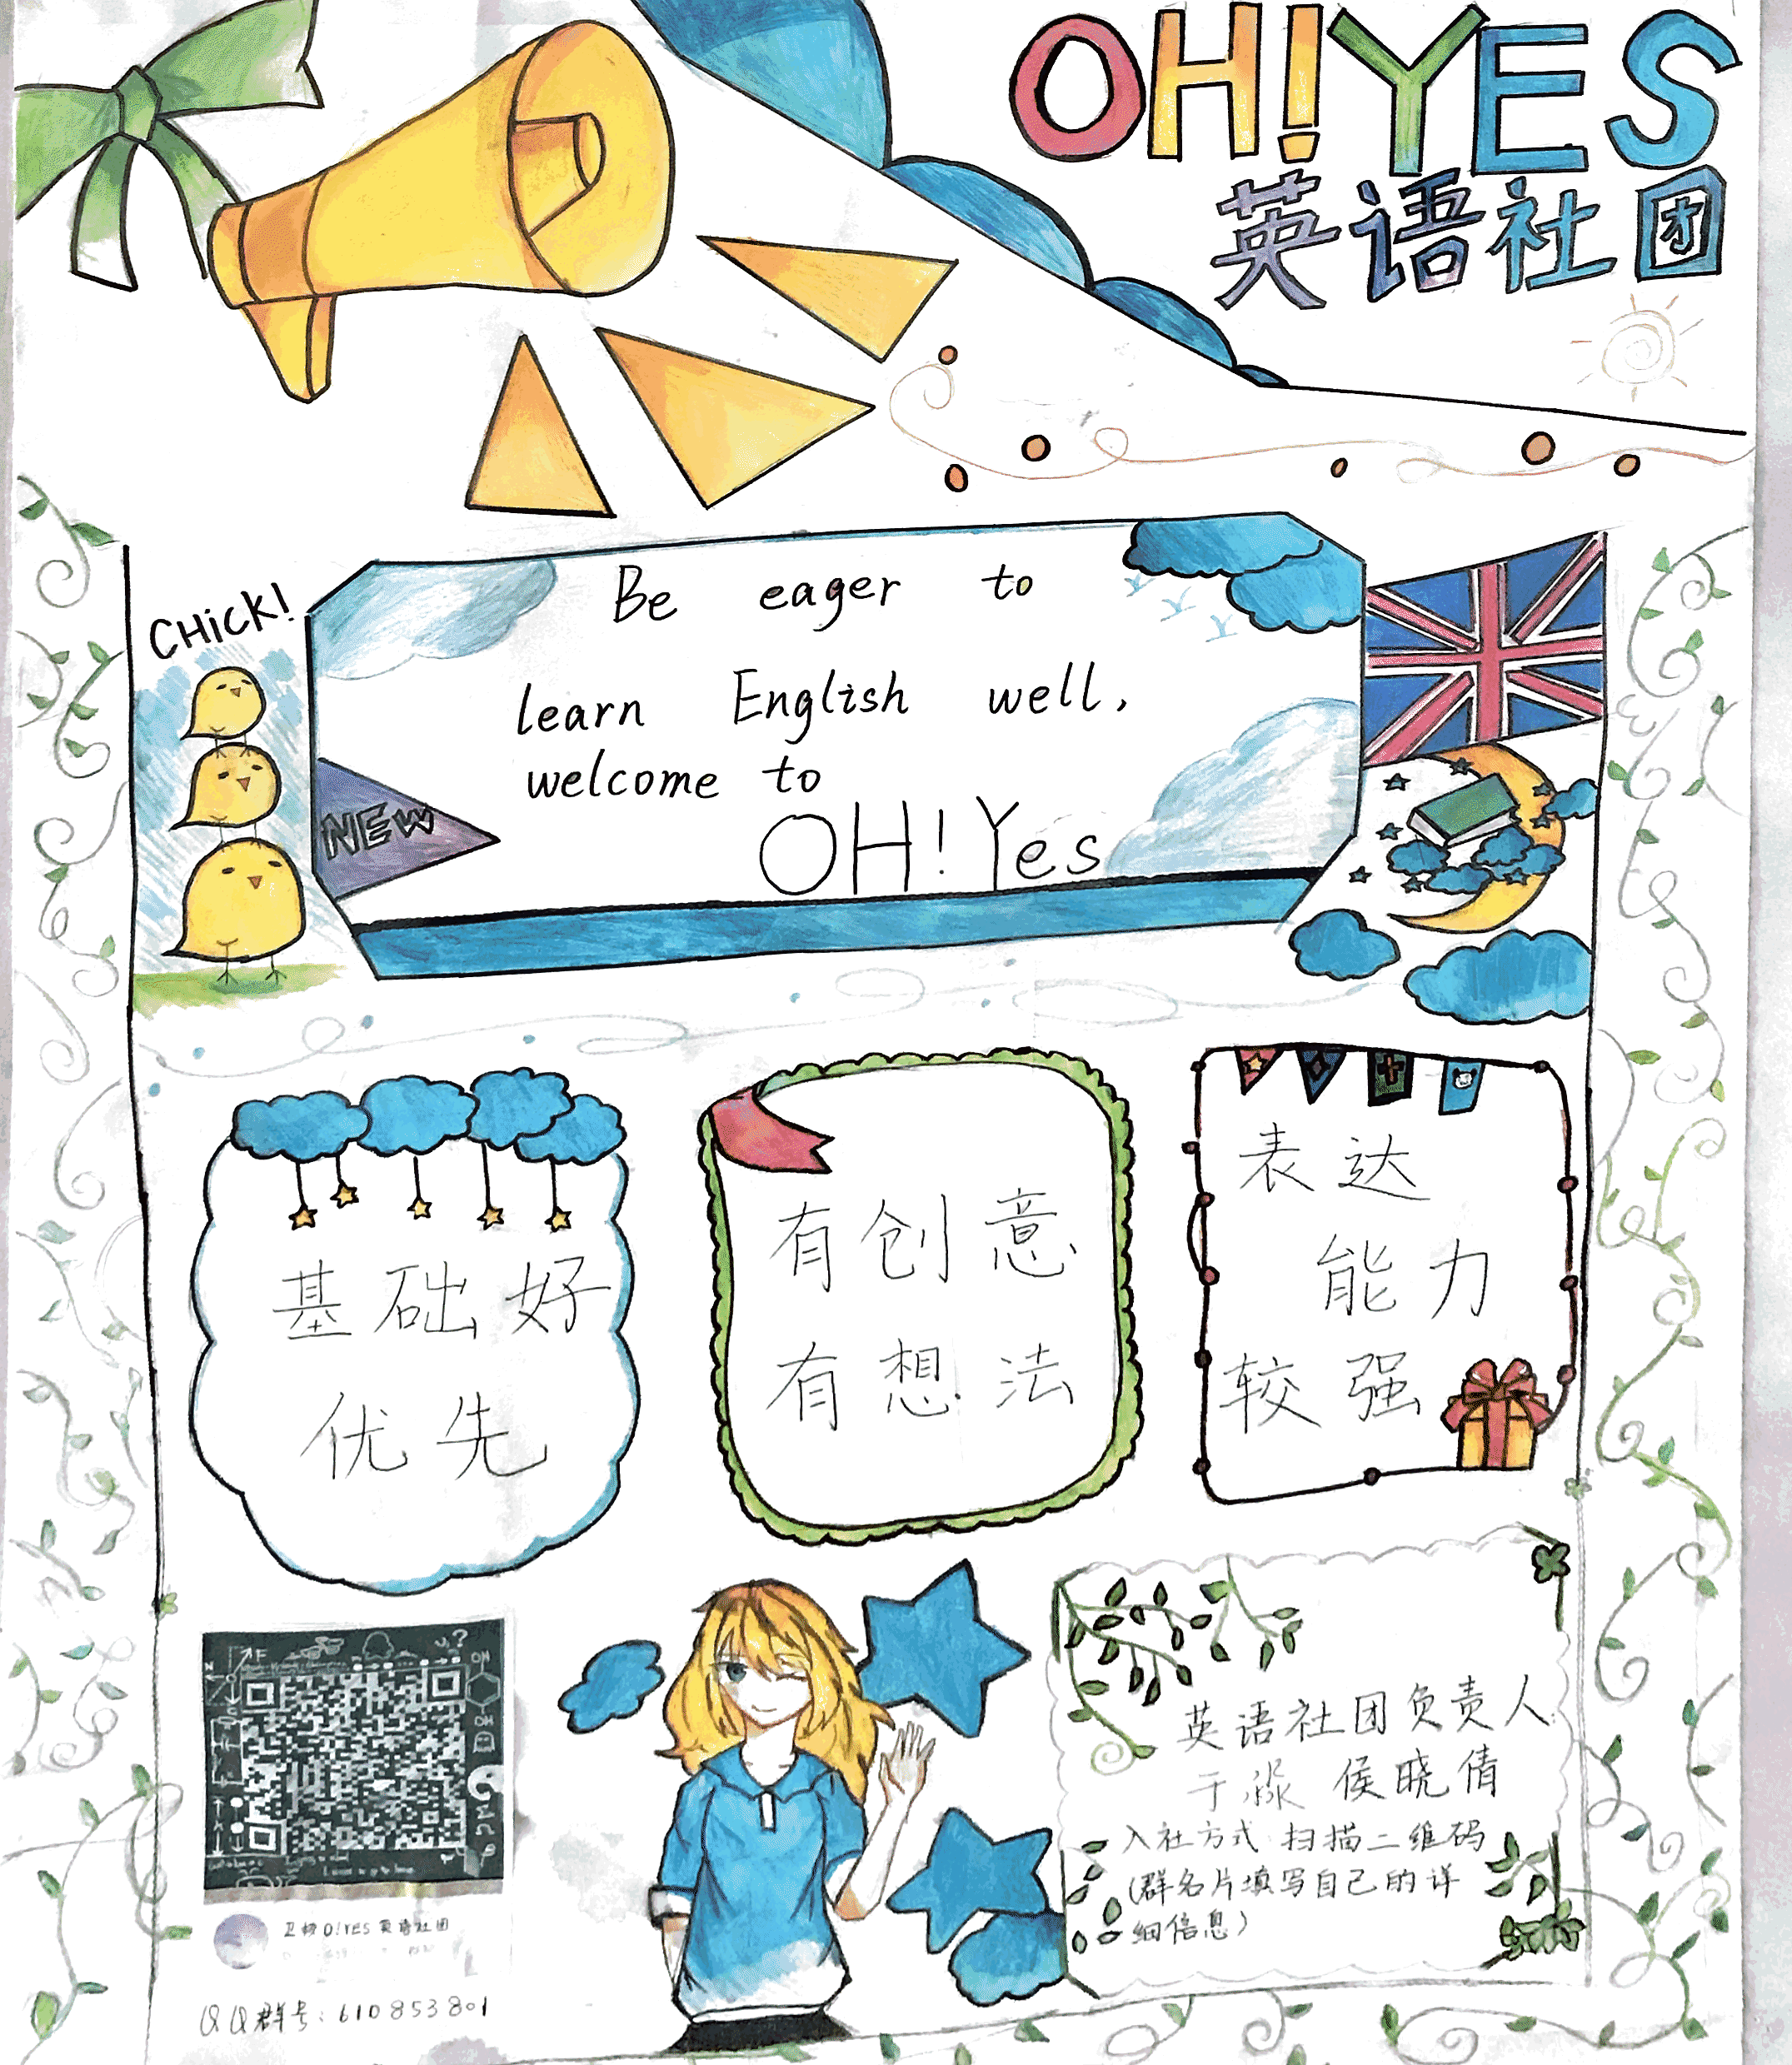 OH!YES
英语社团
CHICK!
Be eager to
learn English well,
welcome to
OH!Yes
NEW
基础好
优先
有创意
有想法
表达
能力
较强
英语社团负责人
于淼 侯晓倩
入社方式 扫描二维码
(群名片填写自己的详
细信息)
O!YES英语社团
QQ群号:610853801